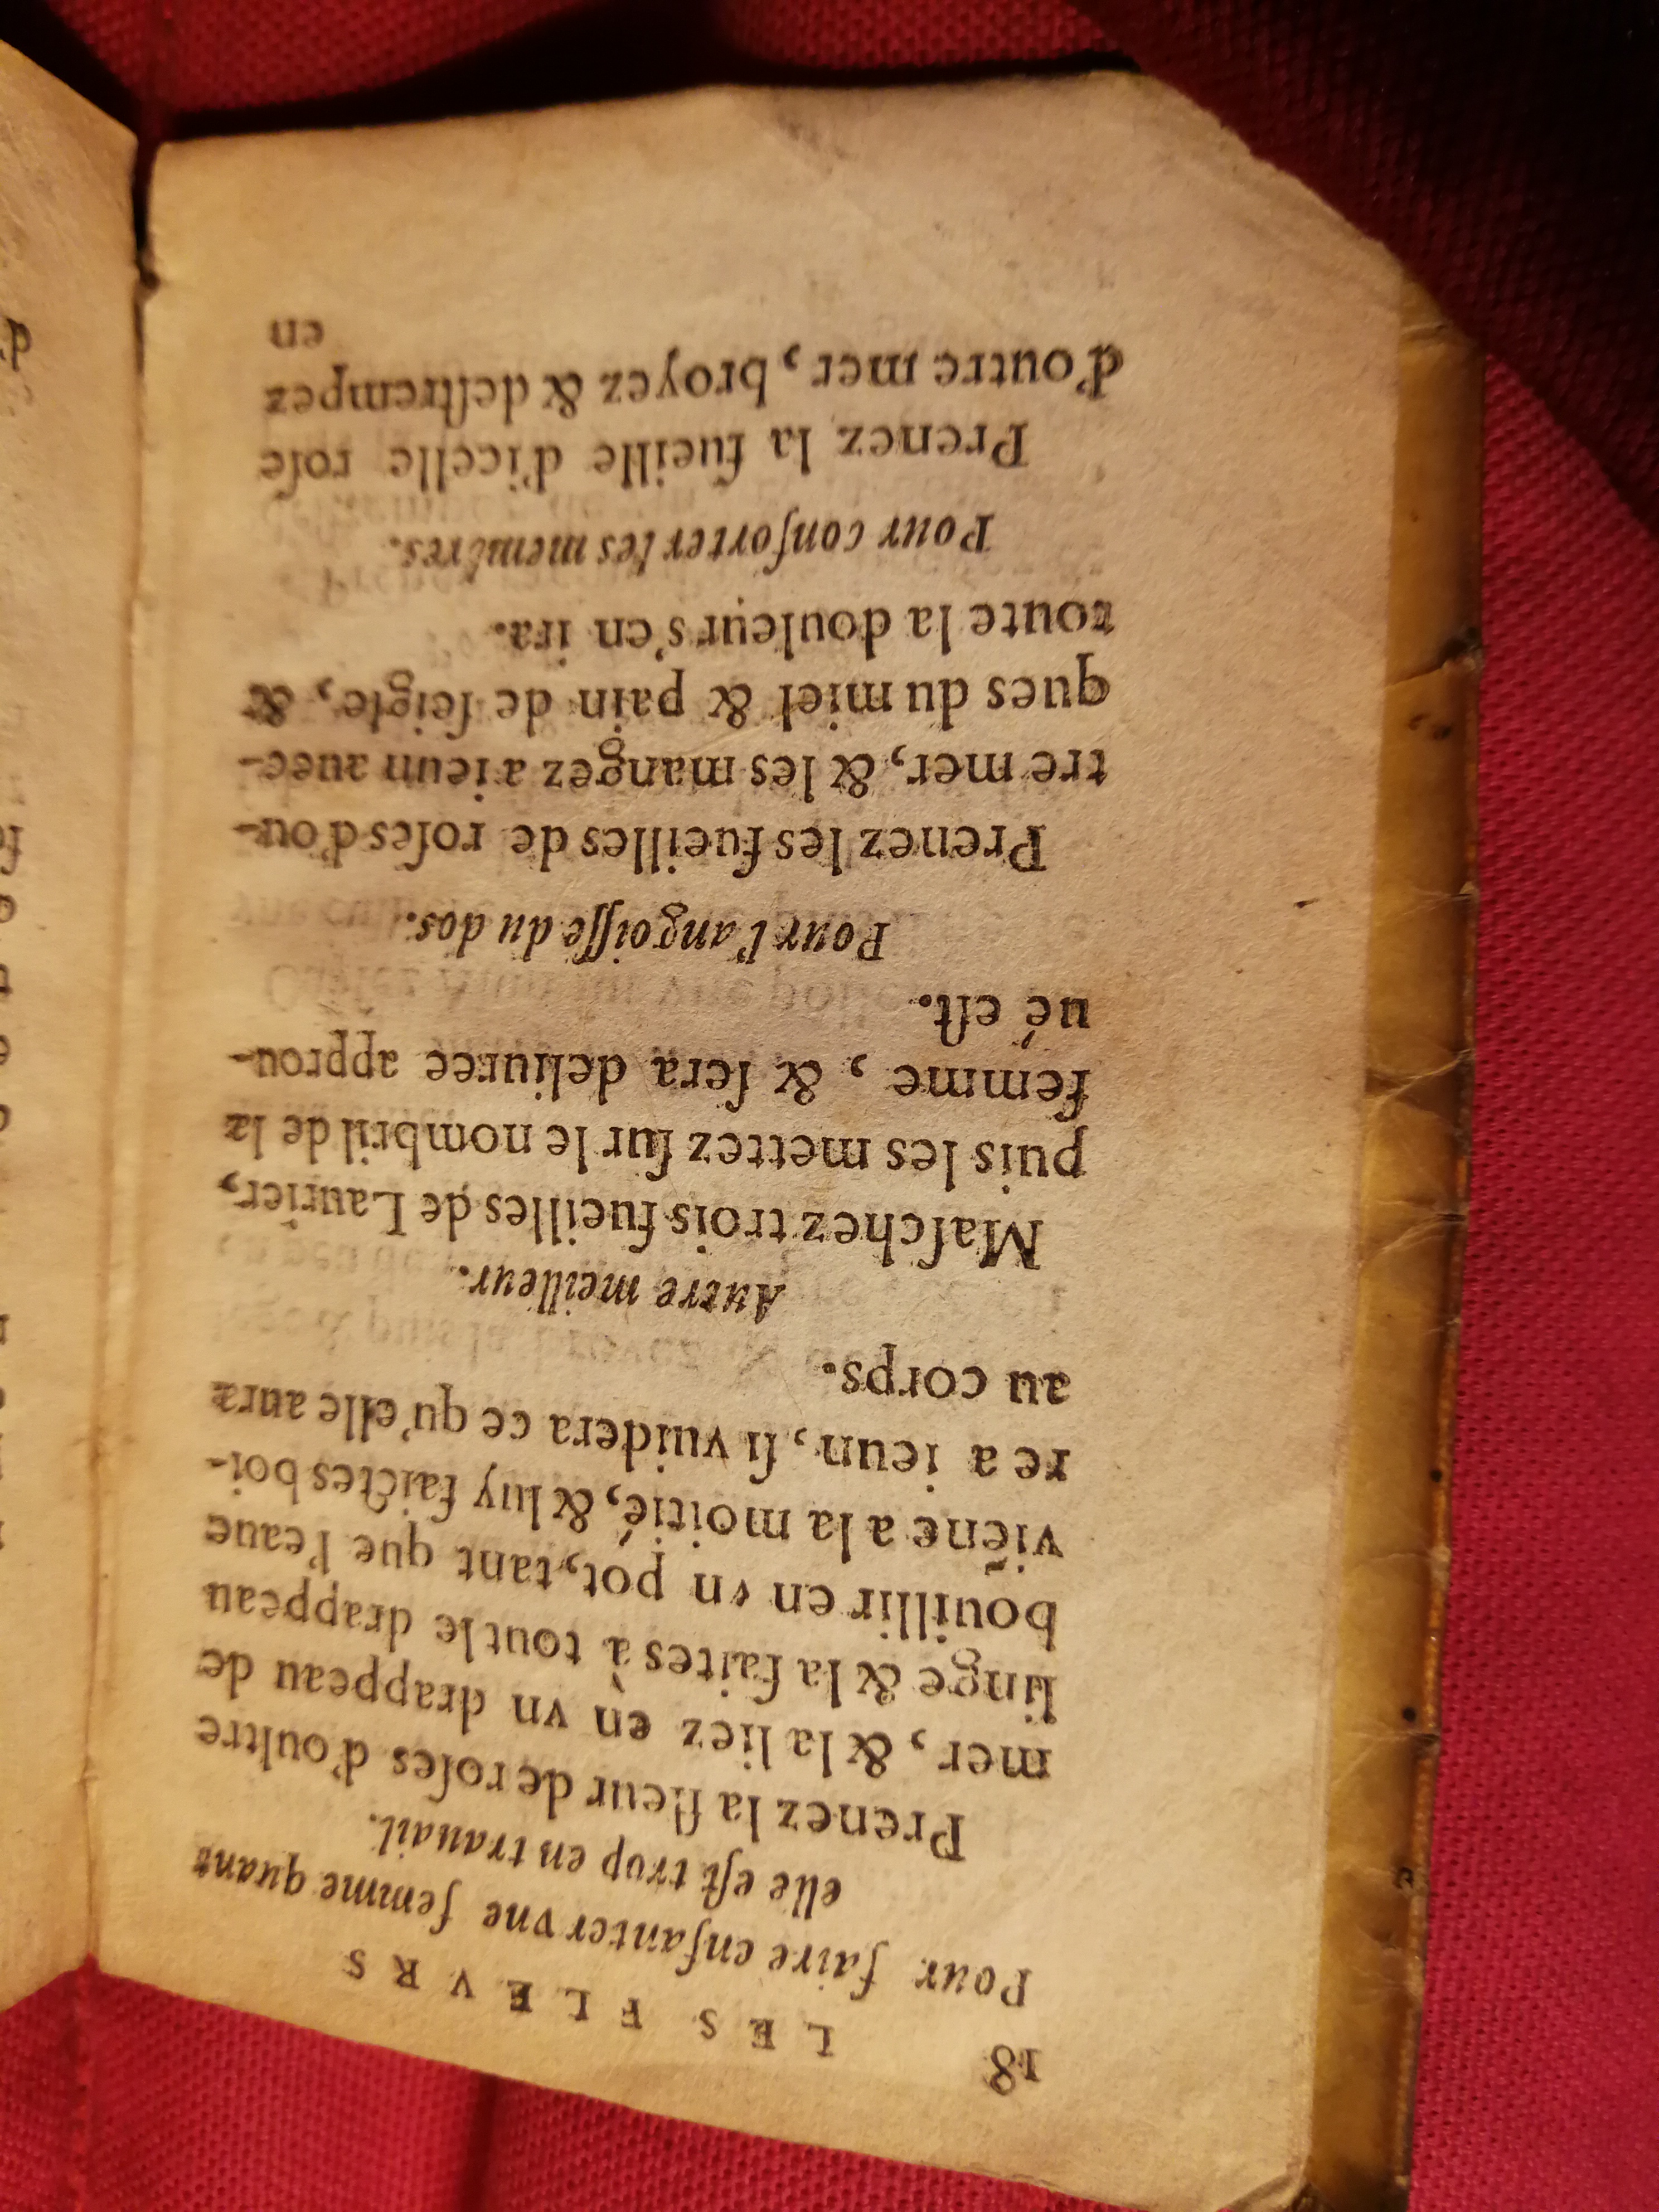 18 LES FLEVRS
Pour faire enfanter vne femme quant
elle eſt trop en trauail.
Prenez la fleur de roſes d'oultre
mer, & la liez en vn drappeau de
linge & la faites à tout le drappeau
bouillir en vn pot, tant que l'eaue
viẽne a la moitié, & luy faictes boi-
re a ieun, ſi vuidera ce qu'elle aura
au corps.
Autre meilleur.
Maſchez trois fueilles de Laurier,
puis les mettez ſur le nombril de la
femme, & ſera deliuree approu-
ué eſt.
Pour l'angoiſſe du dos.
Prenez les fueilles de roſes d'ou-
tre mer, & les mangez a ieun auec-
ques du miel & pain de ſeigle, &
toute la douleur s'en ira.
Pour conforter les membres.
Prenez la fueille d'icelle roſe
d'outre mer, broyez & deſtrempez
en